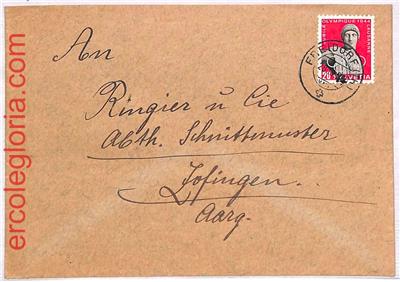 An
Ringier u Cie
Abth. Schnittmuster
Zofingen.
Aarg.
OLYMPIQUE 1944 LAUSANNE
20 HELVETIA
ercolegloria.com